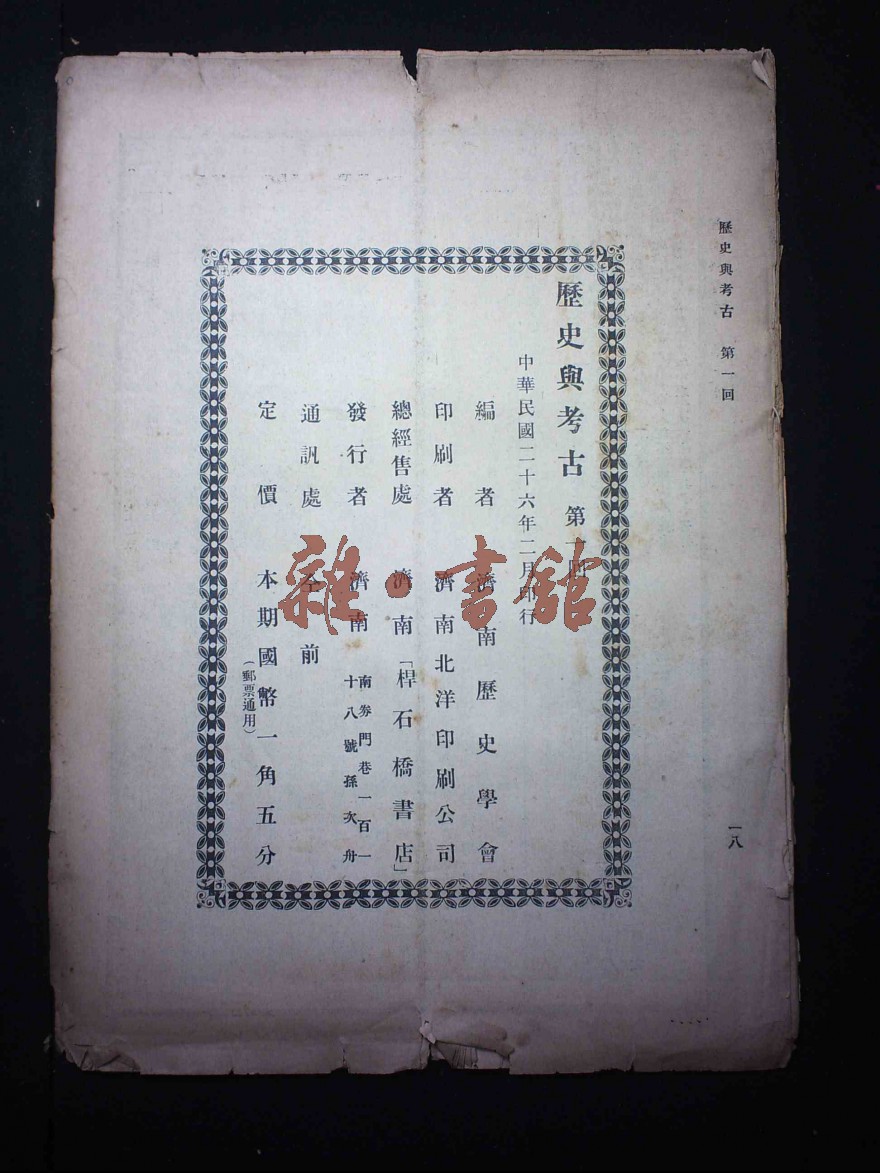 歷史與考古 第一回
一八
歷史與考古 第一回
中華民國二十六年二月印行
編者 濟南歷史學會
印刷者 濟南北洋印刷公司
總經售處 濟南「桿石橋書店」
發行者 濟南 南券門巷一百一
十八號孫次舟
通訊處 仝前
定價 本期國幣一角五分
(郵票通用)
雜·書館